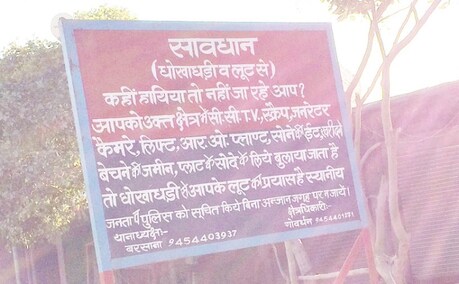 सावधान
(धोखाधड़ी व लूट से)
कहीं हाथिया तो नहीं जा रहे आप?
आपको उक्त क्षेत्र में सी.सी.T.V, स्क्रैप, जनरेटर
कैमरे, लिफ्ट, आर.ओ. प्लाण्ट, सोने की ईंट, खरीदने
बेचने के जमीन, प्लाट के सौदे के लिये बुलाया जाता है
तो धोखाधड़ी से आपके लूट का प्रयास है स्थानीय
जनता व पुलिस को सूचित किये बिना अन्जान जगह पर न जायें।
थानाध्यक्ष:- क्षेत्राधिकारी:-
बरसाना 9454403937 गोवर्धन 9454401291